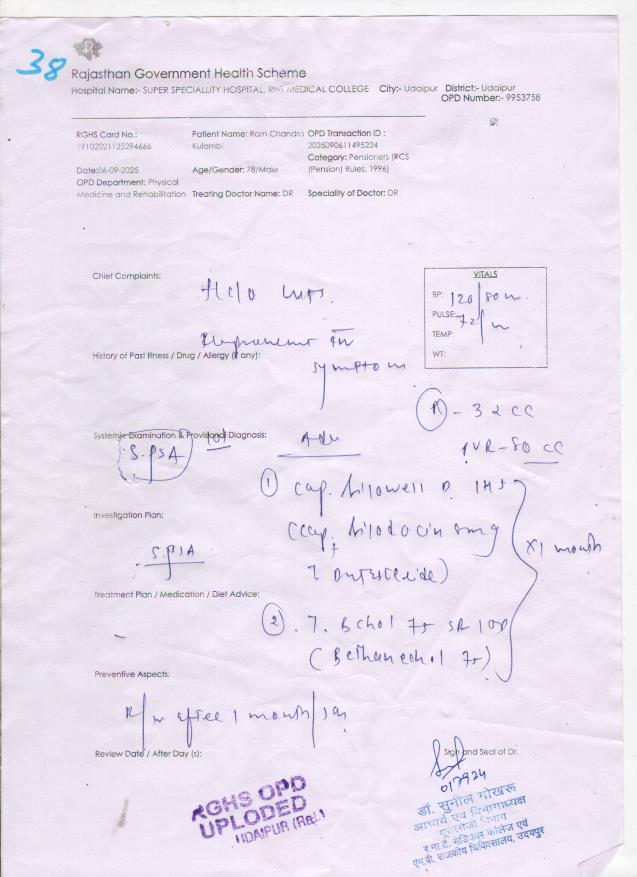 38
Rajasthan Government Health Scheme
Hospital Name:- SUPER SPECIALLITY HOSPITAL, RNT MEDICAL COLLEGE City:- Udaipur District:- Udaipur
OPD Number:- 9953758
RGHS Card No.:
19102021125294666
Patient Name: Ram Chandra
Kulambi
OPD Transaction ID :
2025090611495224
Category: Pensioners (RCS
(Pension) Rules, 1996)
Date:06-09-2025
Age/Gender: 78/Male
OPD Department: Physical
Medicine and Rehabilitation
Treating Doctor Name: DR
Speciality of Doctor: DR
Chief Complaints:
VITALS
BP: 120/80
PULSE: 72/
TEMP:
WT:
History of Past Illness / Drug / Allergy (if any):
symptom
- 32 CC
PVR-80 CC
Systemic Examination & Provisional Diagnosis:
S.PSA
Adv
① cap. Silowell D. 1HS
Investigation Plan:
(Cap. Silodocin 8mg
+
S.PSA
T. Dutasteride)
x1 month
Treatment Plan / Medication / Diet Advice:
② T. Bchol 75 SR 1 OD
(Bethanechol 75)
Preventive Aspects:
R/w after 1 month/
Review Date / After Day (s):
Sign and Seal of Dr.
017924
RGHS OPD
UPLODED
UDAIPUR (Raj.)
डॉ. सुनील गोखरू
आचार्य एवं विभागाध्यक्ष
यूरोलॉजी विभाग
र.ना.टै. मेडिकल कॉलेज एवं
एम.बी. राजकीय चिकित्सालय, उदयपुर